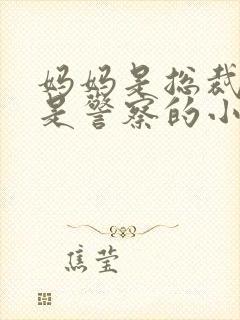 妈妈是总裁
是警察的小
焦莹